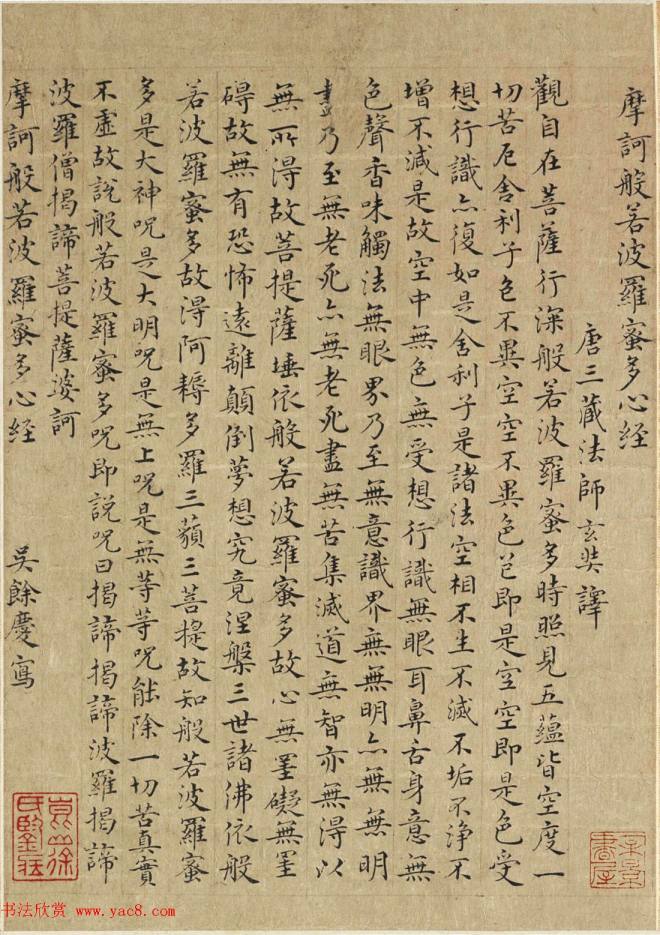 摩訶般若波羅蜜多心经
唐三藏法師玄奘譯
觀自在菩薩行深般若波羅蜜多時照見五蘊皆空度一
切苦厄舍利子色不異空空不異色色即是空空即是色受
想行識亦復如是舍利子是諸法空相不生不滅不垢不淨不
增不減是故空中無色無受想行識無眼耳鼻舌身意無
色聲香味觸法無眼界乃至無意識界無無明亦無無明
盡乃至無老死亦無老死盡無苦集滅道無智亦無得以
無所得故菩提薩埵依般若波羅蜜多故心無罣礙無罣
碍故無有恐怖遠離顛倒夢想究竟涅槃三世諸佛依般
若波羅蜜多故得阿耨多羅三藐三菩提故知般若波羅蜜
多是大神咒是大明咒是無上咒是無等等咒能除一切苦真實
不虛故說般若波羅蜜多咒即說咒曰揭諦揭諦波羅揭諦
波羅僧揭諦菩提薩婆訶
摩訶般若波羅蜜多心经 吳餘慶寫
书法欣赏 www.yac8.com